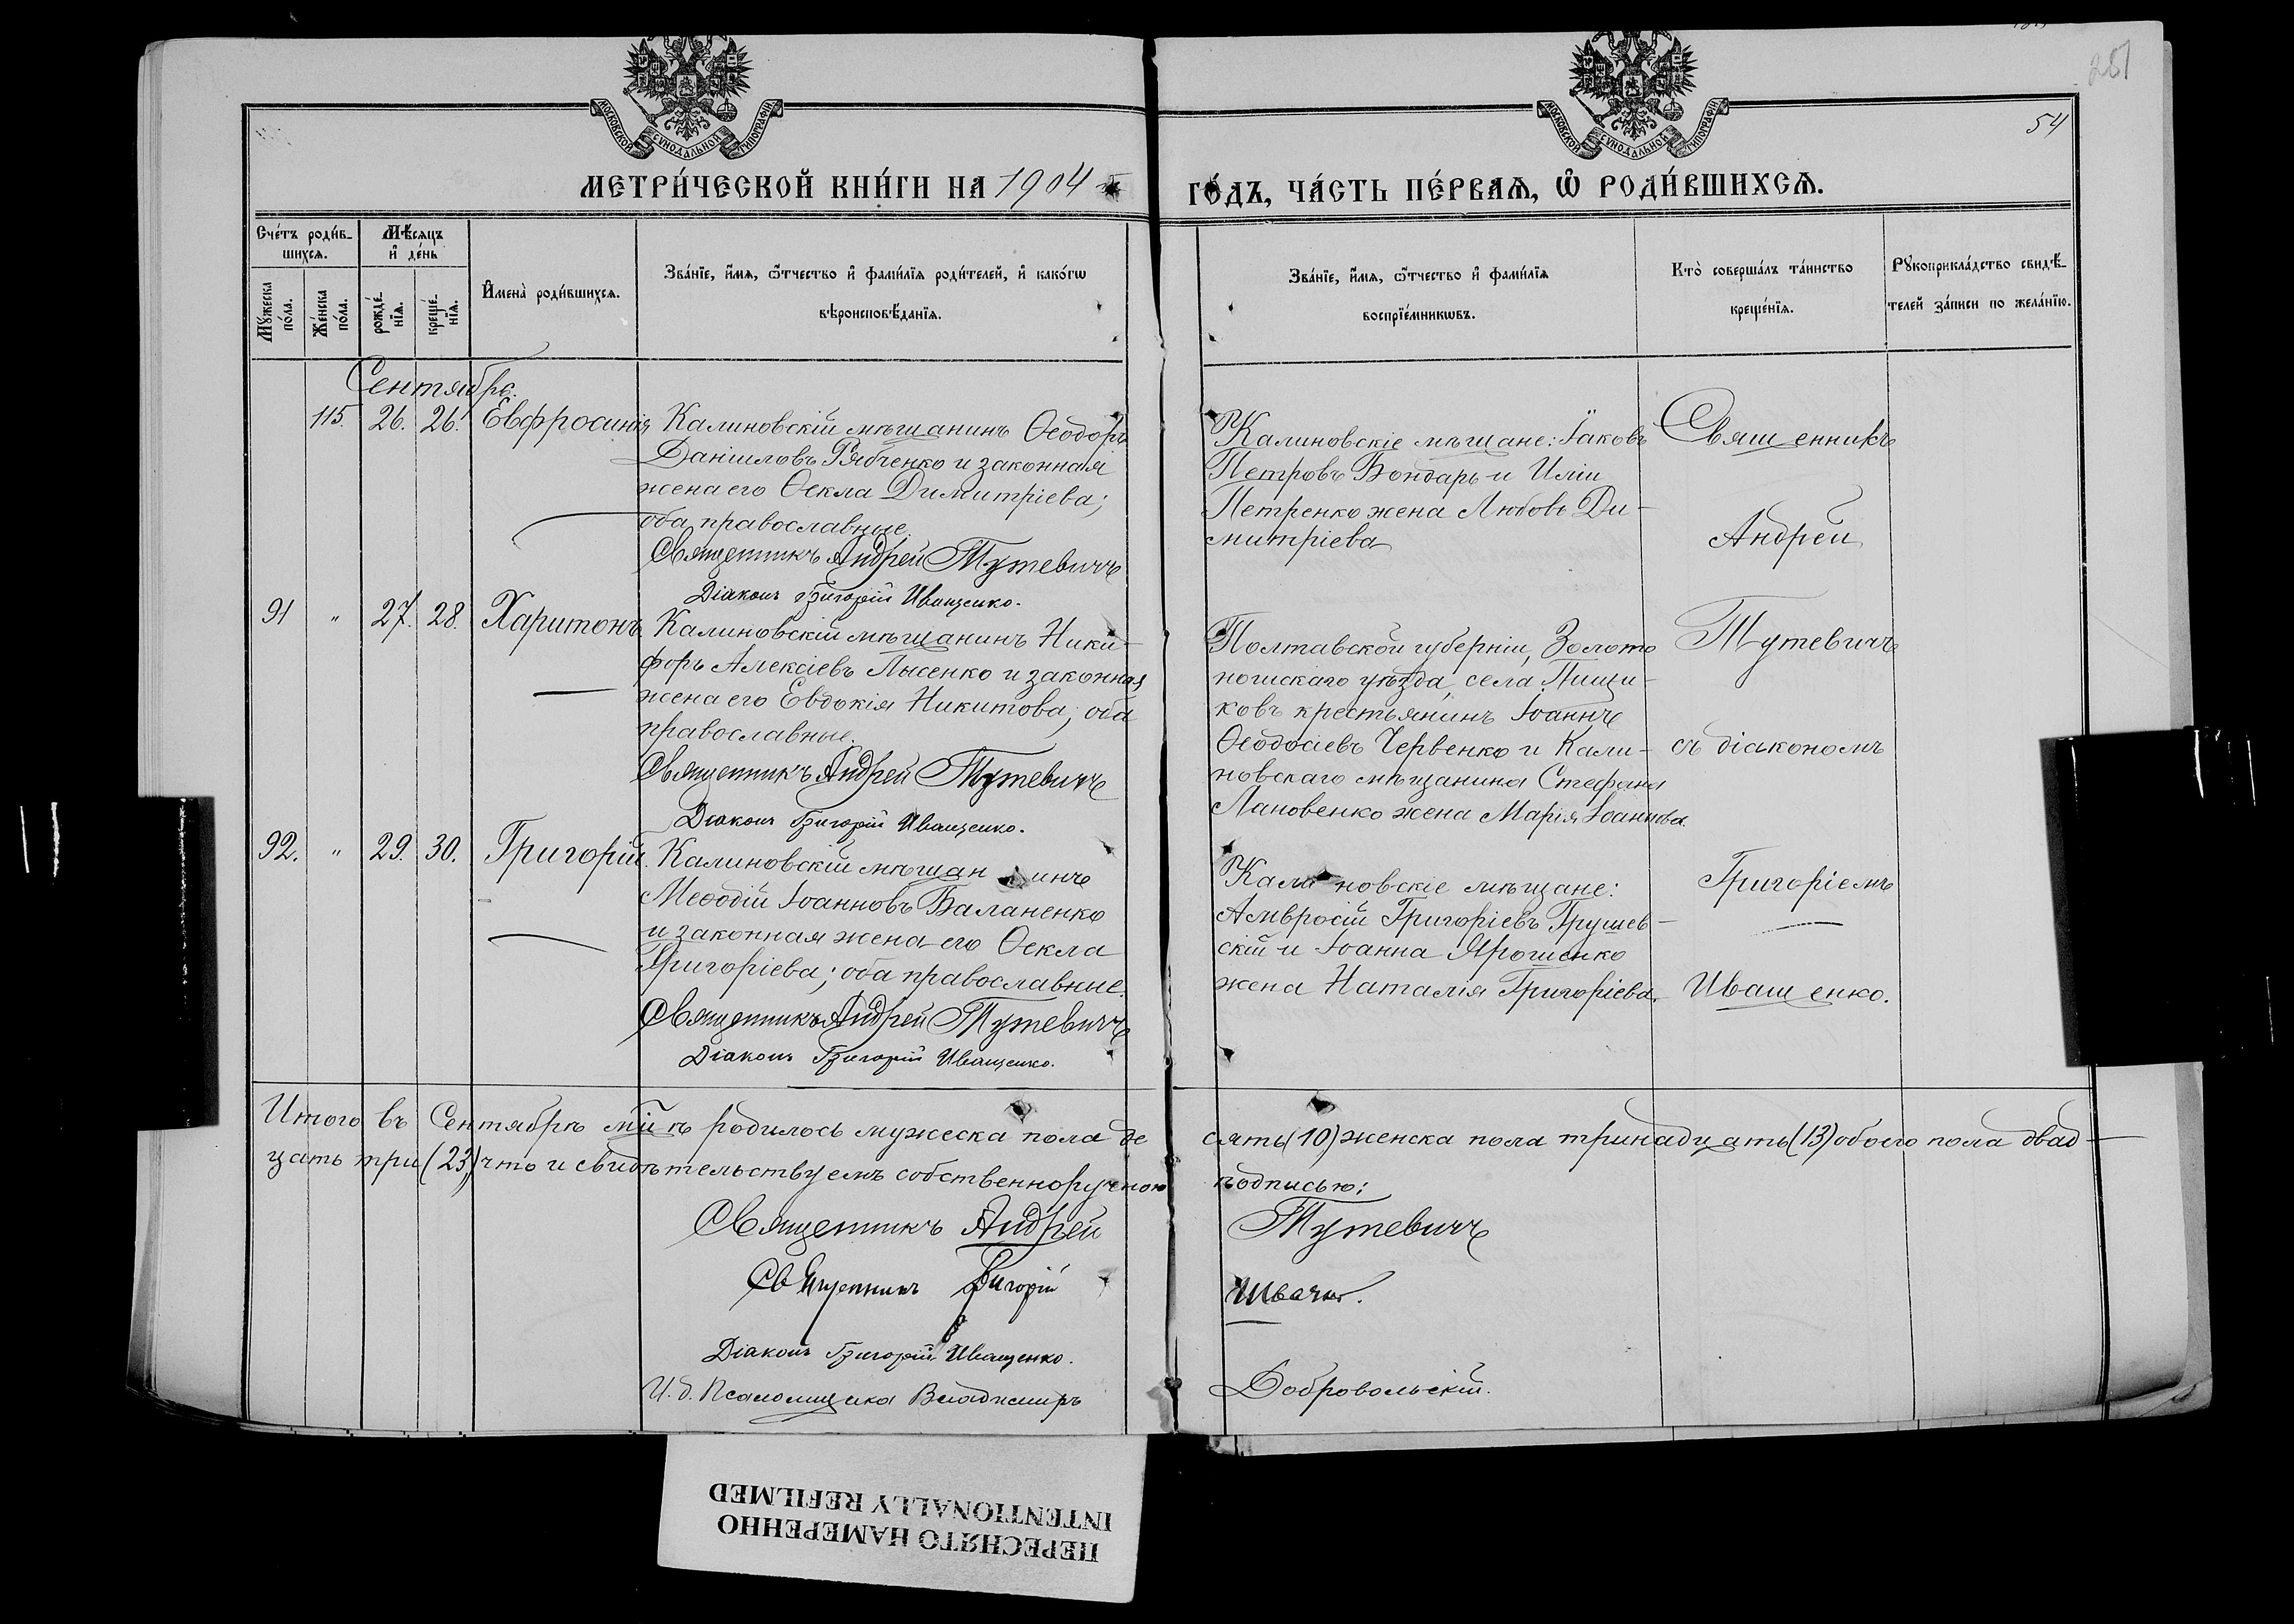 251
54
МОСКОВСКОЙ СѴНОДАЛЬНОЙ ТИПОГРАФІИ
МОСКОВСКОЙ СѴНОДАЛЬНОЙ ТИПОГРАФІИ
МЕТРИ́ЧЕСКОЙ КНИ́ГИ НА 1904
ГО́ДЪ, ЧА́СТЬ ПЕ́РВАѦ, Ѡ҆ РОДИ́ВШИХСѦ.
Сче́тъ роди́в-
шихсѧ.
Мѣ́сѧцъ
и҆ де́нь
Мꙋ́жеска по́ла.
Же́нска по́ла.
рожде́-
нїѧ.
креще́-
нїѧ.
И҆мена̀ роди́вшихсѧ.
Зва́нїе, и҆́мѧ, ѻ҆́тчество и҆ фами́лїѧ роди́телей, и҆ како́гѡ
вѣроисповѣ́данїѧ.
Зва́нїе, и҆́мѧ, ѻ҆́тчество и҆ фами́лїѧ
воспрїе́мникѡвъ.
Кто̀ соверша́лъ та́инство
креще́нїѧ.
Рꙋкоприкла́дство свидѣ́-
телей за́писи по жела́нїю.
Сентябрь.
115. 26. 26. Евфросинія
Калиновскій мѣщанинъ Ѳеодоръ
Даніиловъ Рябченко и законная
жена его Ѳекла Димитріева;
оба православные.
Священникъ Андрей Тутевичъ
Діаконъ Григорій Иващенко.
Калиновскіе мѣщане: Іаковъ
Петровъ Бондарь и Иліи
Петренко жена Любовь Ди-
митріева
Священникъ
Андрей
Тутевичъ
съ діакономъ
Григоріемъ
Иващенко.
91 " 27. 28. Харитонъ
Калиновскій мѣщанинъ Ники-
форъ Алексіевъ Лысенко и законная
жена его Евдокія Никитова; оба
православные.
Священникъ Андрей Тутевичъ
Діаконъ Григорій Иващенко.
Полтавской губерніи, Золото
ношскаго уѣзда, села Пищи-
ковъ крестьянинъ Іоаннъ
Ѳеодосіевъ Червенко и Кали-
новскаго мѣщанина Стефана
Лановенко жена Марія Іоаннова.
92. " 29. 30. Григорій.
Калиновскій мѣщанинъ
Меѳодій Іоанновъ Баланенко
и законная жена его Ѳекла
Григоріева; оба православные.
Священникъ Андрей Тутевичъ
Діаконъ Григорій Иващенко.
Калиновскіе мѣщане:
Амвросій Григоріевъ Грушев-
скій и Іоанна Ярошенко
жена Наталія Григоріева.
Итого въ Сентябрѣ м̃цѣ родилось мужеска пола де
сять (10) женска пола тринадцать (13) обоего пола двад-
цать три (23) что и свидѣтельствуемъ собственноручною
подписью:
Священникъ Андрей Тутевичъ
Священникъ Григорій
Діаконъ Григорій Иващенко.
И. д. Псаломщика Владимиръ Добровольскій.
ПЕРЕСНЯТО НАМЕРЕННО
INTENTIONALLY REFILMED